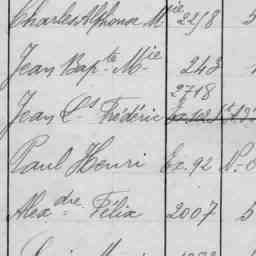 Charles Alphonse Mie 2258 5
Jean Bapte Mie 243
2718
Jean Cs Frédéric
Paul Henri Ex. 92 No
Alexdre Félix 2007 5